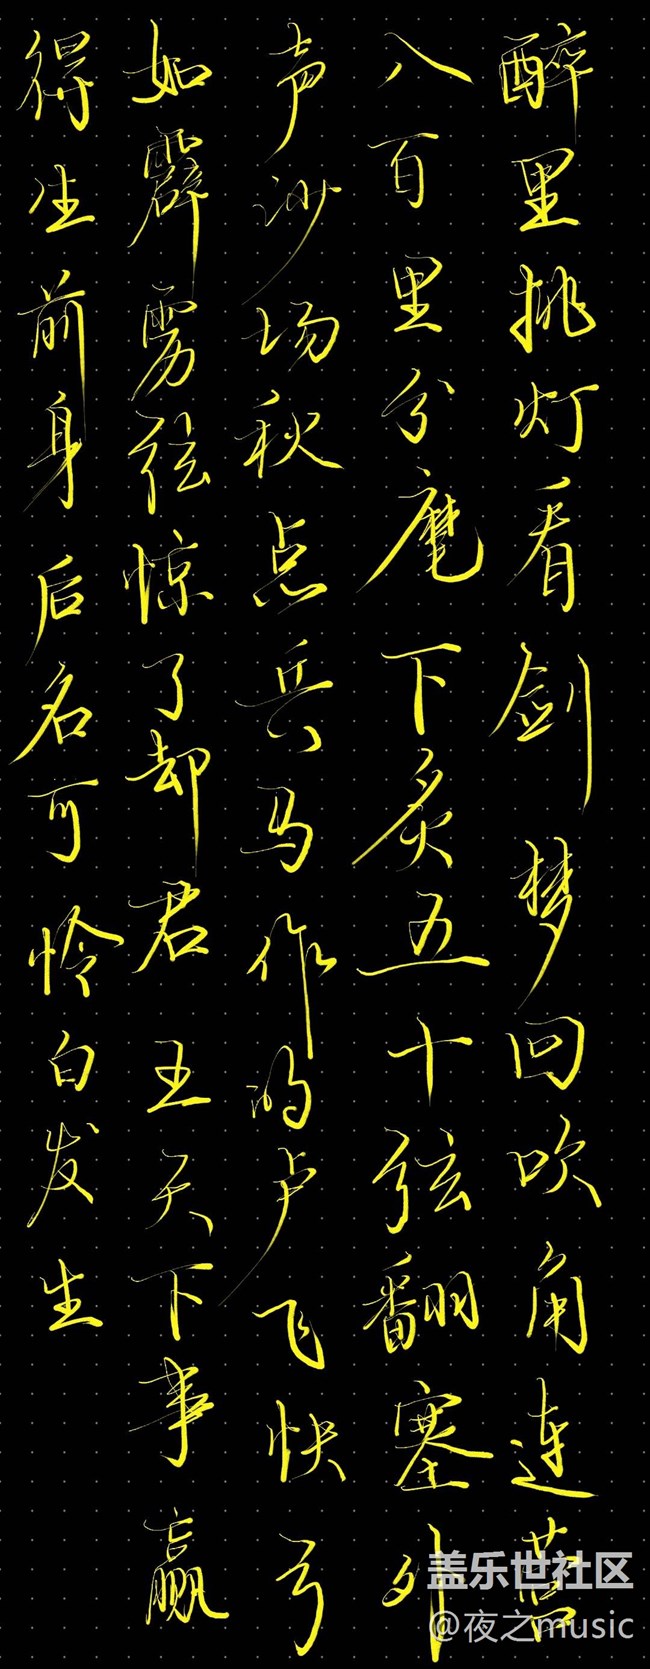 醉里挑灯看剑梦回吹角连营
八百里分麾下炙五十弦翻塞外
声沙场秋点兵马作的卢飞快弓
如霹雳弦惊了却君王天下事赢
得生前身后名可怜白发生
盖乐世社区
@夜之music